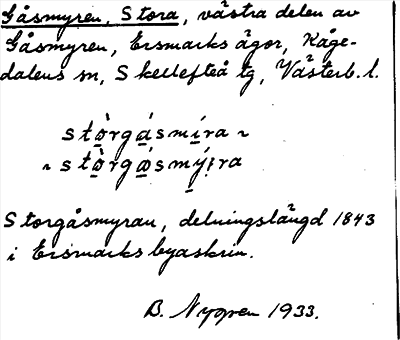 Gåsmyren, Stora, västra delen av
Gåsmyren, Ersmarks ägor, Kåge-
dalens sn, Skellefteå tg, Västerb. l.
stòrgásmíra ~
~ stòrgásmýra
Storgåsmyran, delningslängd 1843
i Ersmarks byaskrin.
B. Nygren 1933.